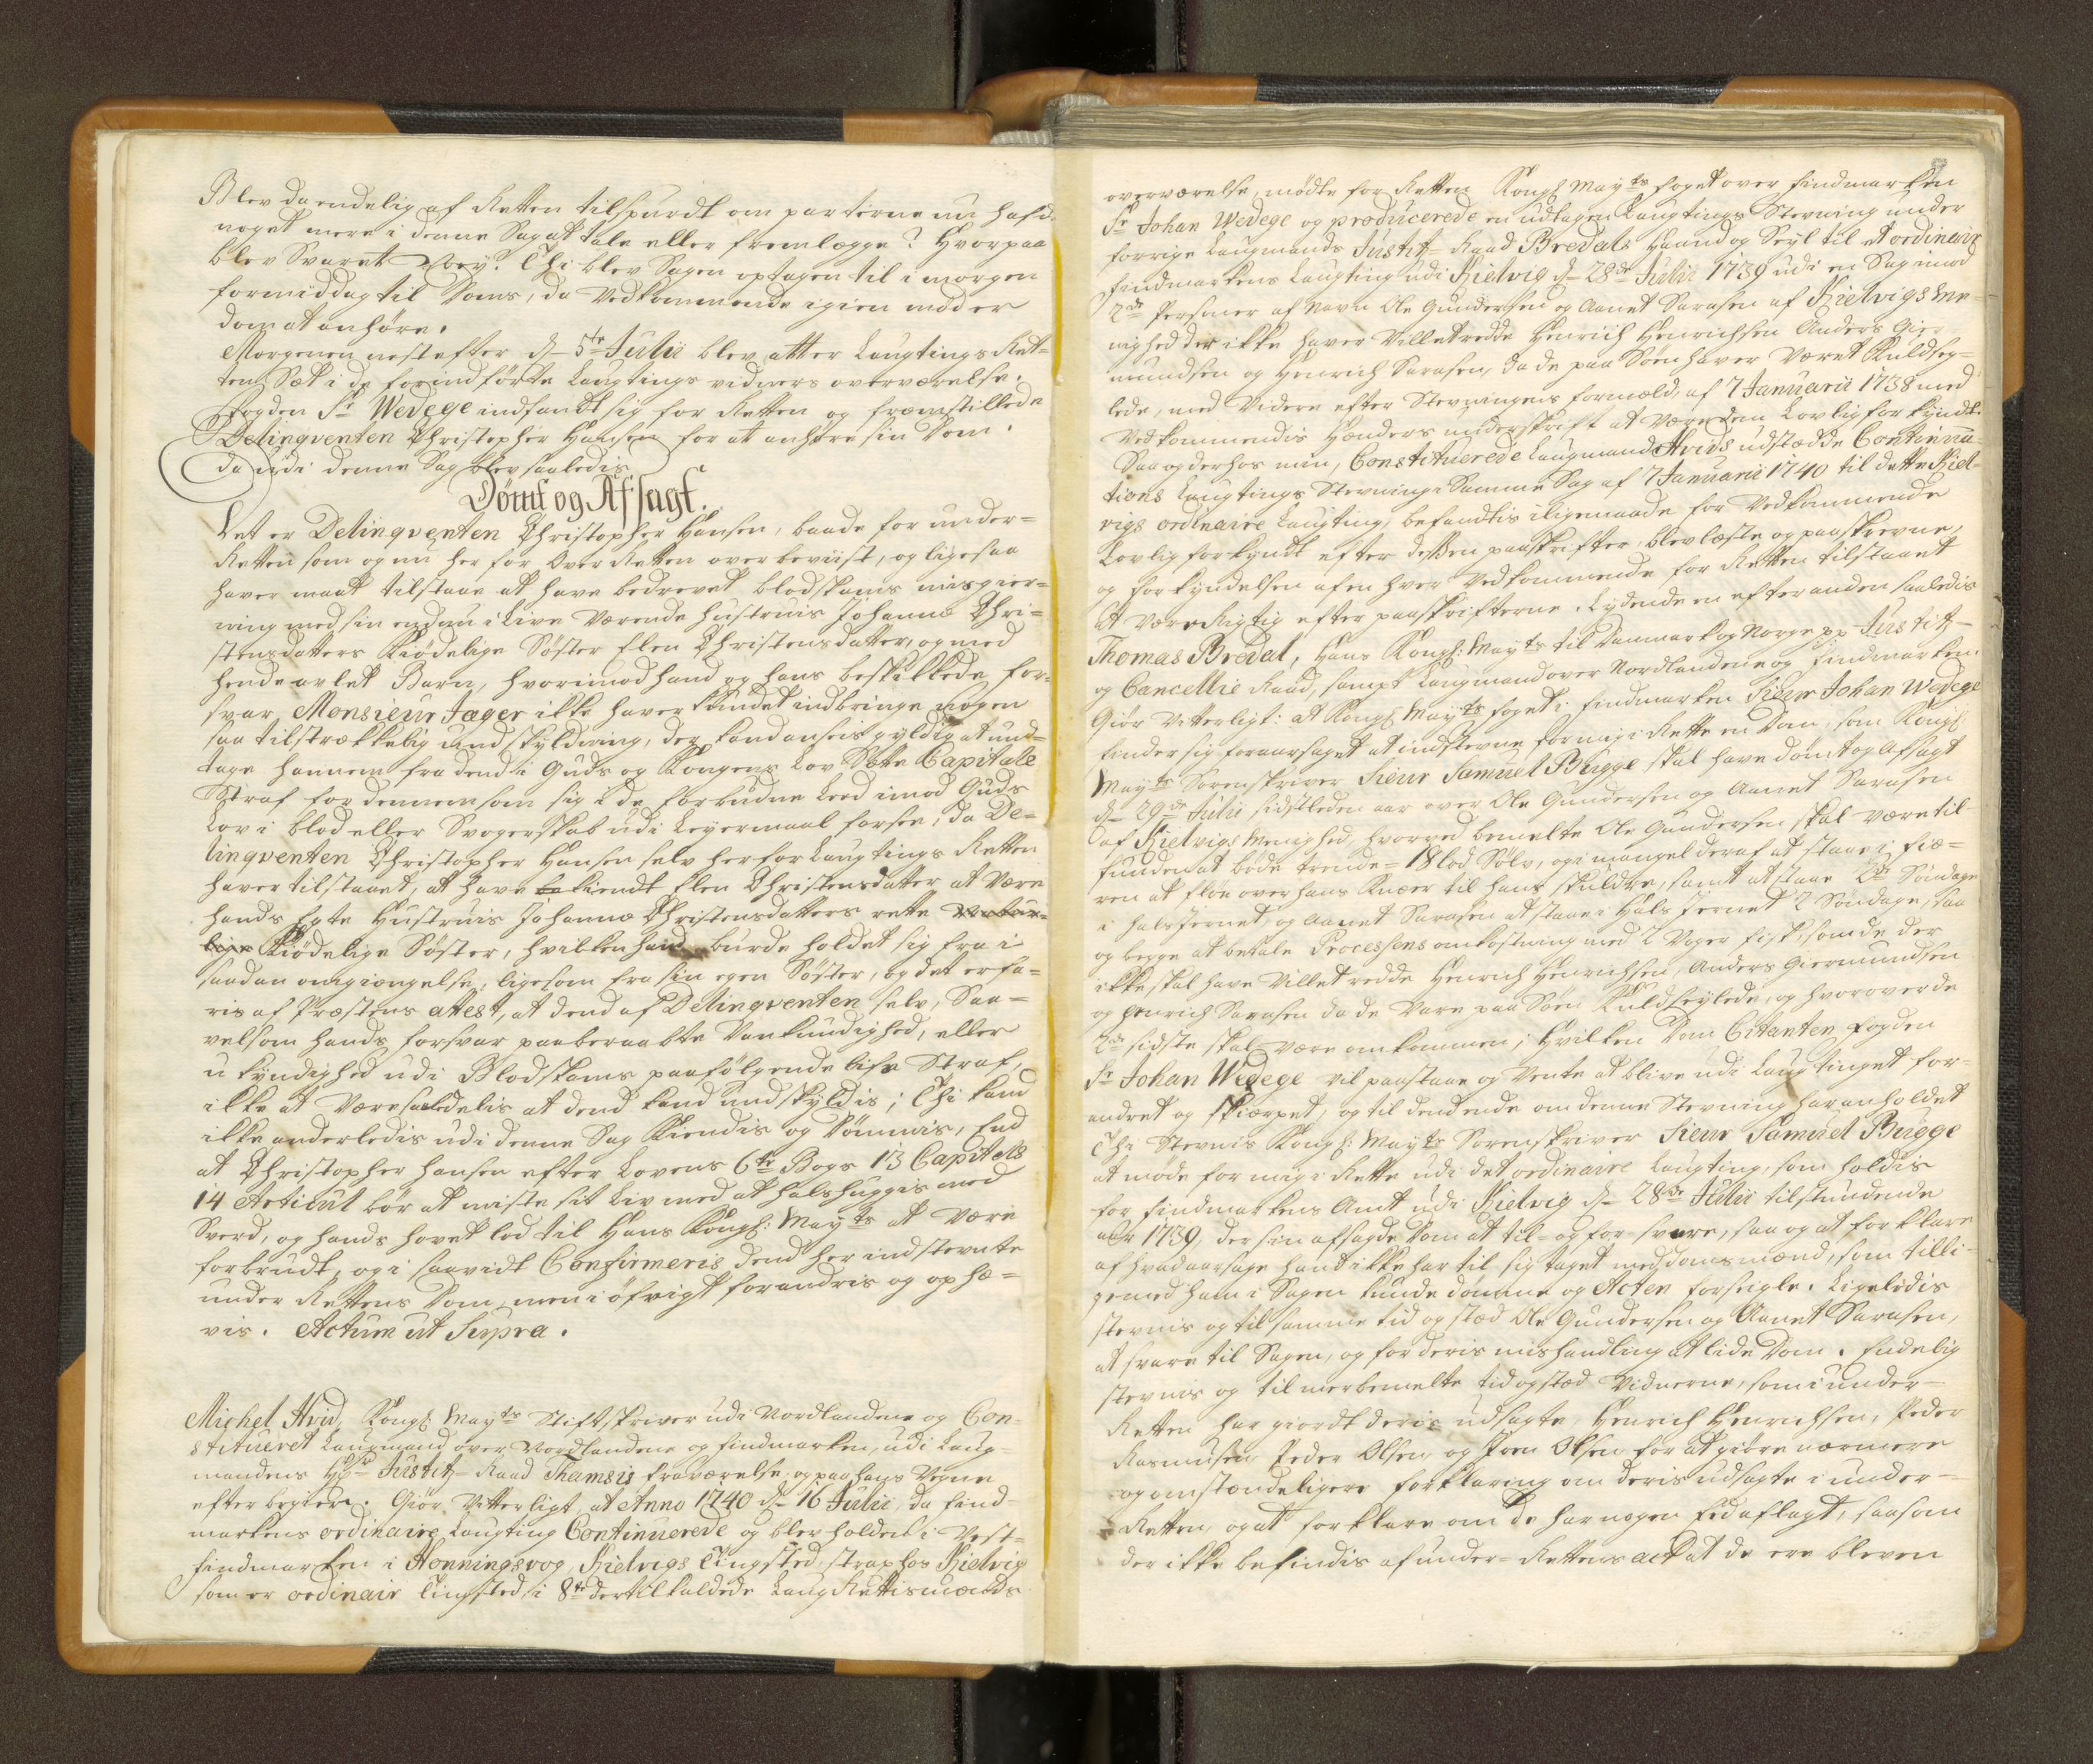 Blev da endelig af Retten tilspurdt om parterne nu hafde
noget mere i denne Sag at tale eller fremlægge? Hvorpaa
blev Svaret Ney. Thi blev Sagen optagen til i morgen
formiddag til Doms, da Vedkommende igien møder
dom at anhøre.
Morgenen nest efter d. 5te Julii blev atter Laugtings Ret-
ten Sæt i de forindførte Laugtings vidners overværelse.
Fogden Sr. Wedege indfandt sig for Retten og fremstillede
Delinqventen Christopher Hansen for at anhøre sin Dom.
da udi denne Sag blev saaledis
Dømt og Afsagt.
Det er Delinqventen Christopher Hansen, baade for under-
Retten som og nu her for Over Retten overbeviist, og ligesaa
haver maat tilstaae at have bedrevet blodskams misgier-
ning med sin endnu i Live Værende Hustruis Johanne Chri-
stensdatters Kiødelige Søster Elen Christensdatter, og med
hende avlet Barn, hvorimod hand og hans beskikkede For-
svar Monsieur Jæger ikke haver kundet indbringe nogen
saa tilstrækkelig undskyldning, der kand ansees gyldig at und-
tage hannem fra dend i Guds og Kongens Lov Satte Capitale
Straf for dennem som sig i de forbudne Leed imod Guds
Lov i blod eller Svogerskab udi Leyermaal forsee, da De-
linqventen Christopher Hansen selv her for Laugtings Retten
haver tilstaaet, at have bekiendt Elen Christensdatter at Være
hands Egte Hustruis Johanne Christensdatters rette
Kiødelige Søster, hvilken hand burde holdet sig fra i
saadan omgiengelse, ligesom fra sin egen Søster, og det erfa-
ris af Præstens attest, at dend af Delinqventen selv, Saa-
velsom hands forsvar paaberaabte Vankundighed, eller
ukyndighed udi Blodskams paafølgende lifs Straf,
ikke at Være saaledelis at dend kand undskyldis; Thi kand
ikke anderledis udi denne Sag Kiendis og Dømmis, End
at Christopher Hansen efter Lovens 6te Bogs 13 Capitels
14 Articul bør at miste sit Liv med at halshuggis med
Sverd, og hands hovet lod til Hans Kongl: Mayts at Være
forbrudt, og i saavidt Confirmeris dend her indstevnte
under Rettens Dom, men i øfrigt forandris og ophæ-
vis. Actum ut Supra.
Michel Hvid, Kongl: Mayts Stiftskriver udi Nordlandene og Con-
stitueret Laugmand over Nordlandene og Findmarken, udi Laug-
mandens Hr Justitz-Raad Thamsis fraværelse, og paa hans Vegne
efter begiær. Giør Vitterligt, at Anno 1740 d. 16 Julii, da Find-
markens ordinaire Laugting Continuerede og blev holden i Vest-
findmarken i Honningsvog Kielvigs Tingsted, strax hos Kielvig
som er ordinair tingsted, i 8te der tilkaldede Laug Rettismænds
overværelse, mødte for Retten Kongl: Mayts foget over Findmarken
Sr Johan Wedege og producerede en udtagen Laugtings Stevning under
forrige Laugmands Justitz-Raad Bredals Haand og Seyl til et ordinair
Findmarkens Laugting udi Kielvig d. 28de Julii 1739 udi en Sag imod
2de Personer af Navn Ole Gundersen og Aanet Sarasen af Kielvigs Me-
nighed der ikke haver Villet redde Henrich Henrichsen Anders Gier-
mundsen og Henrich Sarasen, da de paa Søen haver Været Kuldsey-
lede, med Videre efter Stevningens formæld, af 7 Januarii 1738 med
Vedkommendis Hænders underskrift at Være dem Lovlig forkyndt.
Saa og derhos min, Constituerede Laugmand Hvids udstædde Continua-
tions Laugtings Stevning i Samme Sag af 7 Januarii 1740 til dette Kiel-
vigs ordinaire Laugting, befandtis iligemaade for Vedkommende
Lovlig forkyndt efter dessen paaskrifter, blev læste og paaskrevne,
og forkyndelsen af en hver Vedkommende for Retten tilstaaet
at Være Rigtig efter paaskrifterne. Lydende en efter anden saaledis
Thomas Bredal, Hans Kongl: Mayts til Danmark og Norge pp Justitz-
og Cancellie Raad, sampt Laugmand over Nordlandene og Findmarken.
Giør Vitterligt: at Kongl: Mayts foget i Findmarken Sieur Johan Wedege
finder sig foraarsaget at indstevne for mig i Rette en Dom, som Kongl:
Mayts Sorenskriver Sieur Samuel Bugge skal have dømt og Afsagt
d. 29de Julii sidstleden aar over Ole Gundersen og Aanet Sarasen
af Kielvigs Menighed, hvorved bemelte Ole Gundersen skal være til-
funden at bøde trende- 18 lod Sølv, og i mangel deraf at staae i Fiæ-
ren at floe over hans Knæer til hans skuldre, samt at staae 2de Søndage
i halsjernet, og Aanet Sarasen at staae i Halsjernet 2 Søndage, saa
og begge at betale Processens omkostning med 2 Voger fisk, som de der
ikke skal have Villet redde Henrich Henrichsen, Anders Giermundsen
og Henrich Sarasen da de Vare paa Søen Kuldseylede, og hvorover de
2de sidste skal være omkommen; hvilken Dom Citanten Fogden
Sr Johan Wedege vil paastaae og Vente at blive udi Laugtinget for-
andret og skiærpet, og til dend ende om denne Stevning har anholdet
Thi Stevnis Kongl: Mayts Sorenskriver Sieur Samuel Bugge
at møde for mig i Rette udi det ordinaire Laugting, som holdis
for Findmarkens Amt udi Kielvig d. 28de Julii tilstundende
aar 1739, der sin afsagde Dom at til- og for-svare, saa og at forklare
af hvad aarsage hand ikke har til sig taget meddomsmænd, som tilli-
gemed ham i Sagen kunde dømme og Acten forseigle. Ligeledis
stevnis og til samme tid og stæd Ole Gundersen og Aanet Sarasen,
at svare til Sagen, og for deris mishandling at lide Dom. Endelig
stevnis og til merbemelte tid og stæd Vidnerne, som i under-
Retten har giordt deris udsagte, Henrich Henrichsen, Peder
Rasmusen Peder Olsen og Iven Olsen for at giøre nærmere
og omstændeligere forklaring om deris udsagte i under-
Retten, og at forklare om de har nogen Eed aflagt, saasom
der ikke befindis af under-Rettens act at de ere bleven